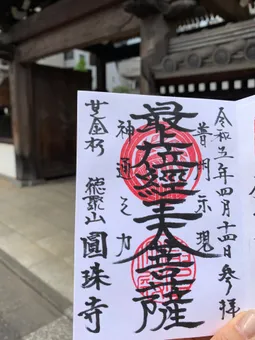 令和五年四月十四日参拝
普門示現
最上位經王大菩薩
神通之力
金杉 徳聚山 圓珠寺